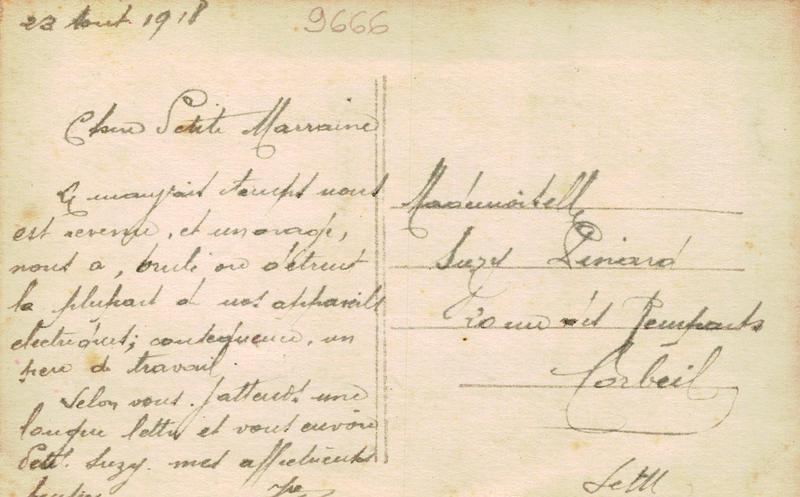 23 Aout 1918
9666
Chere Petite Marraine
Le mauvais temps nous
est revenu, et un orage,
nous a, brulé ou détruit
la plupart d nos appareils
electriques; consequence, un
peu de travail.
Selon vous. J'attends une
longue lettre et vous envoie
Petite Suzy mes affectueux
Mademoiselle
Suzy Pinard
20 rue des Remparts
Corbeil